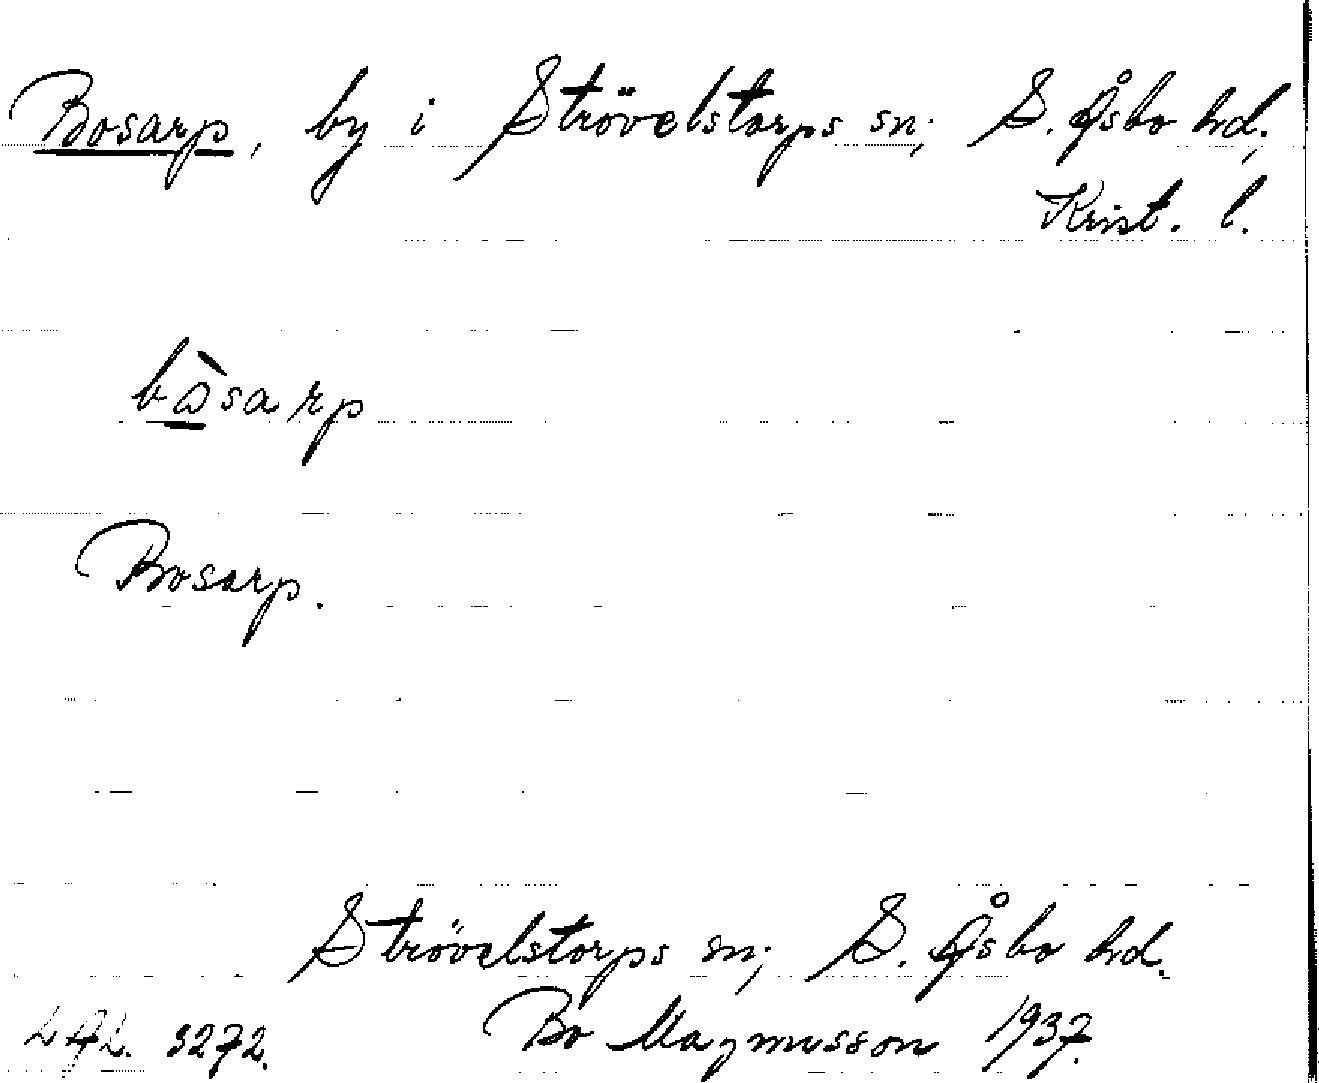 Bosarp, by i Strövelstorps sn; S. Åsbo hd;
Krist. l.
bòsarp
Bosarp.
Strövelstorps sn; S. Åsbo hd.
LAL. 3272. Bo Magnusson 1937.